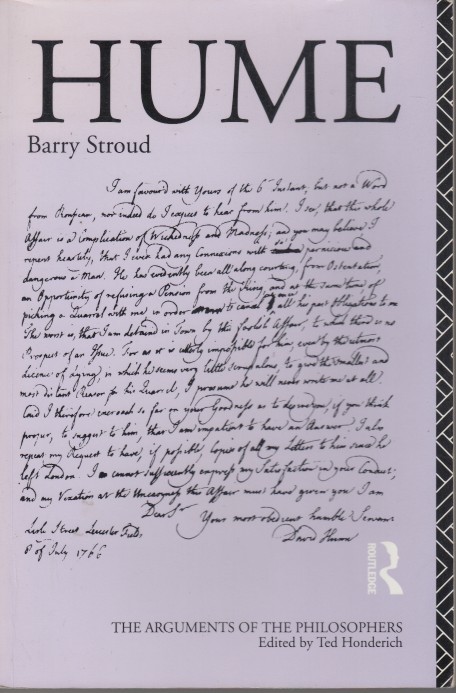 HUME
Barry Stroud
I am favour'd with Yours of the 6th Instant, but not a Word
from Rousseau, nor indeed do I expect to hear from him. I see, that this whole
Affair is a Complication of Wickedness and Madness; and you may believe I
repent heartily, that I ever had any Connexions with so pernicious and
dangerous a Man. He has evidently been all along courting, from Ostentation,
an Opportunity of refusing a Pension from the King, and at the same time of
picking a Quarrel with me, in order to cancel all his past Obligations to me
The worst is, that I am detain'd in Town by this Affair, to which there is no
Prospect of an Issue. For as it is utterly impossible for him, even by the utmost
Licence of Lying, in which he seems very little scrupulous, to give the smallest and
most distant Reason for his Quarrel, I presume he will never wrote me at all
Coud I therefore encroach so far on your Goodness as to desire you, if you think
proper, to suggest to him, that I am impatient to have an Answer. I also
repeat my Request to have, if possible, Copies of all my Letters to him since he
left London. I cannot sufficiently express my Satisfaction in your Conduct;
and my Vexation at the Uneasyness this Affair must have given you I am
Dear Sr
Your most obedient humble Servant
Lisle Street, Leicester Fields,
David Hume
8 of July 1766
ROUTLEDGE
THE ARGUMENTS OF THE PHILOSOPHERS
Edited by Ted Honderich